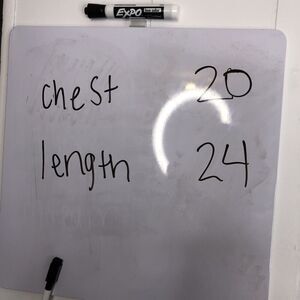 EXPO
chest 20
length 24